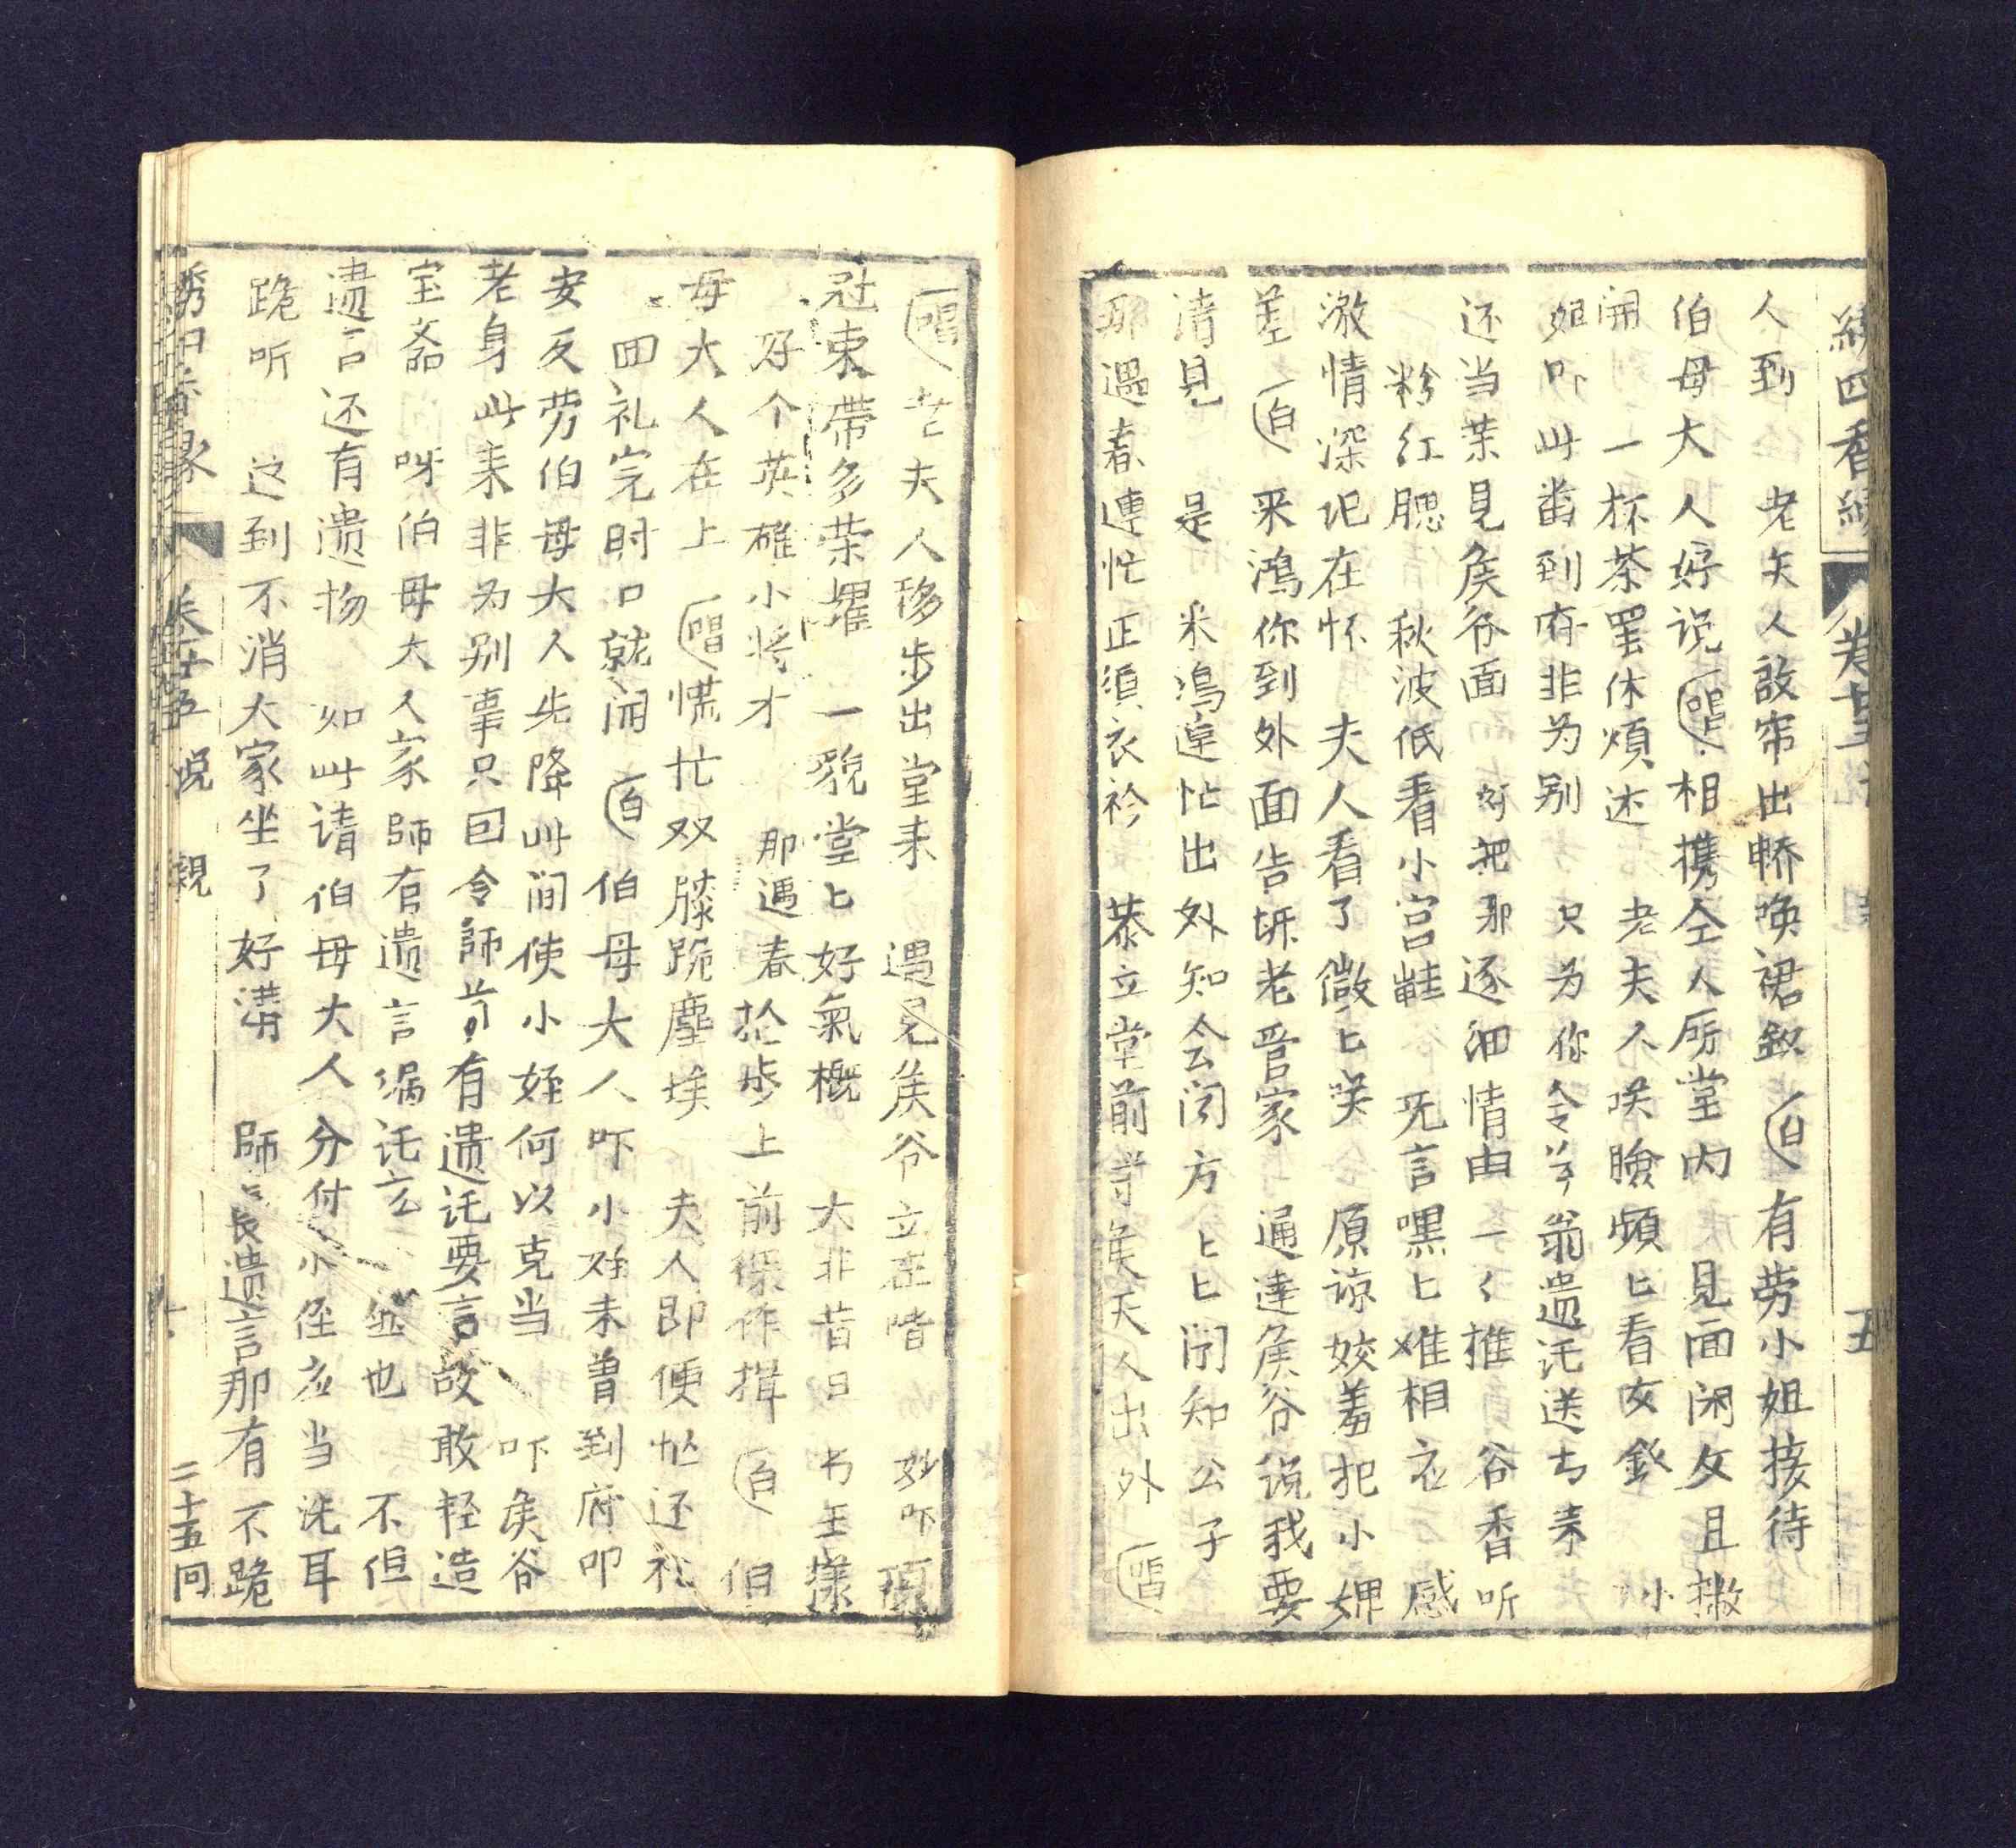 绣四香緣 卷 五
人到 老夫人啟帘出轿唤裙釵 白 有劳小姐接待
伯母大人好说 唱 相携仝人厛堂内 見面闲文且撇
開 一杯茶罢休煩述 老夫人咲臉頻匕看女釵 小
姐吓此畨到府非为别 只为你令尊翁遗託送古耒
还当茉見矦爷面 好把那逐细情由一〻推 谷香听
粉红腮 秋波低看小宫鞋 旡言嘿匕难相 感
激情深记在怀 夫人看了微匕咲 原谅姣羞把小婢
差 白 采鴻你到外面告诉老晋家 通達矦谷说我要
清見 是 米鴻連忙出外知会闵方匕匕闵知公子
那遇春連忙正須衣衿 恭立堂前等矦夫人出外 唱
唱 老夫人移步出堂耒 遇見矦爷立在階 妙吓 頭
冠束帶多荣耀 一貌堂匕好氣概 大非昔日书生樣
好个英雄小将才 那遇春抡步上前深作揖 白 伯
母大人在上 唱 慌忙双膝跪塵埃 夫人即便忙还礼
回礼完时口就闹 白 伯母大人吓小姪未曽到府叩
安反劳伯母大人先降此间使小姪何以克当 吓矦谷
老身此耒非为别事只因令師前有遗託要言故敢轻造
宝斋 呀伯母大人家師有遗言嘱託么 也 不但
遗言还有遗物 如此请伯母大人分付小侄应当洗耳
跪听 这到不消大家坐了好講 師長遗言那有不跪
绣四香緣 卷五 说親 二十五囘